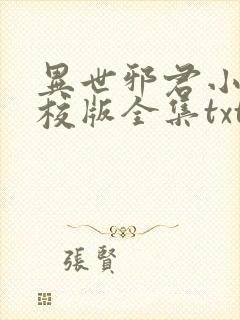 異世邪君小
校版全集txt
張賢